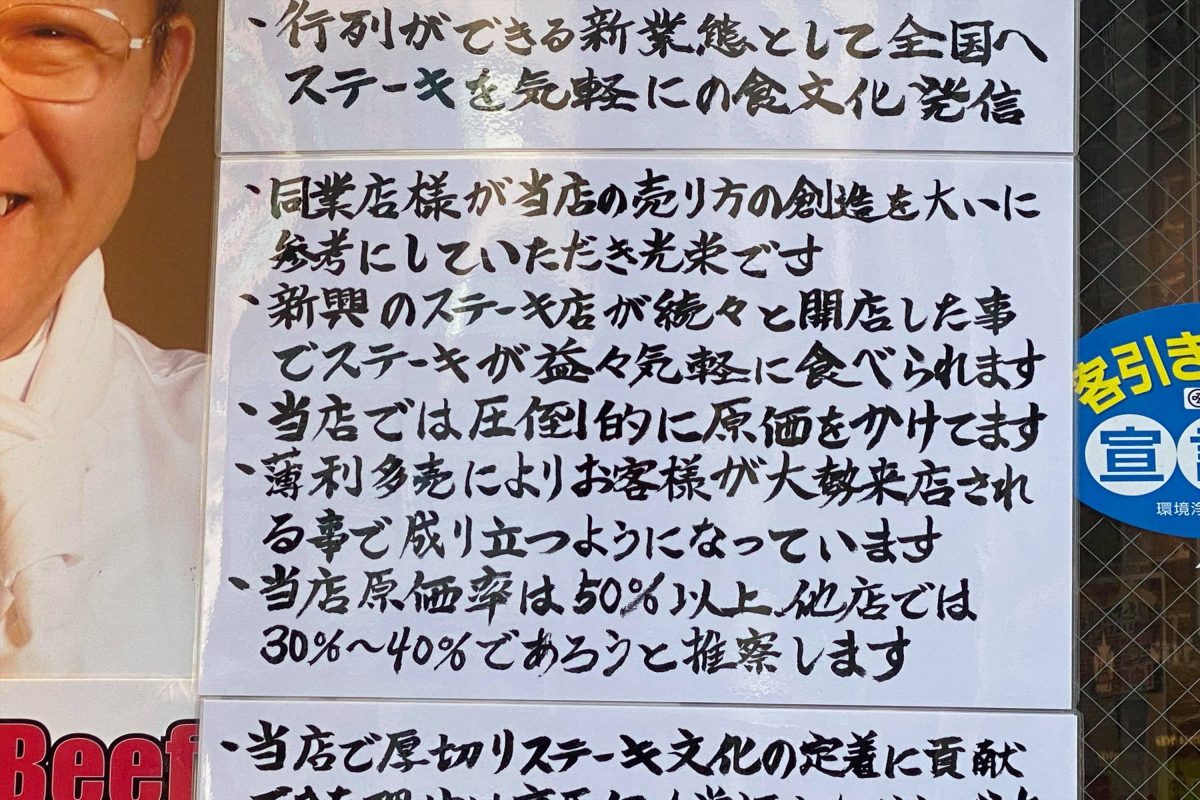 ・行列ができる新業態として全国へ
ステーキを気軽にの食文化発信
・同業店様が当店の売り方の創造を大いに
参考にしていただき光栄です
・新興のステーキ店が続々と開店した事
でステーキが益々気軽に食べられます
・当店では圧倒的に原価をかけてます
・薄利多売によりお客様が大勢来店され
る事で成り立つようになっています
・当店原価率は50%以上、他店では
30%〜40%であろうと推察します
・当店で厚切りステーキ文化の定着に貢献
Beef
客引き
宣
環境浄